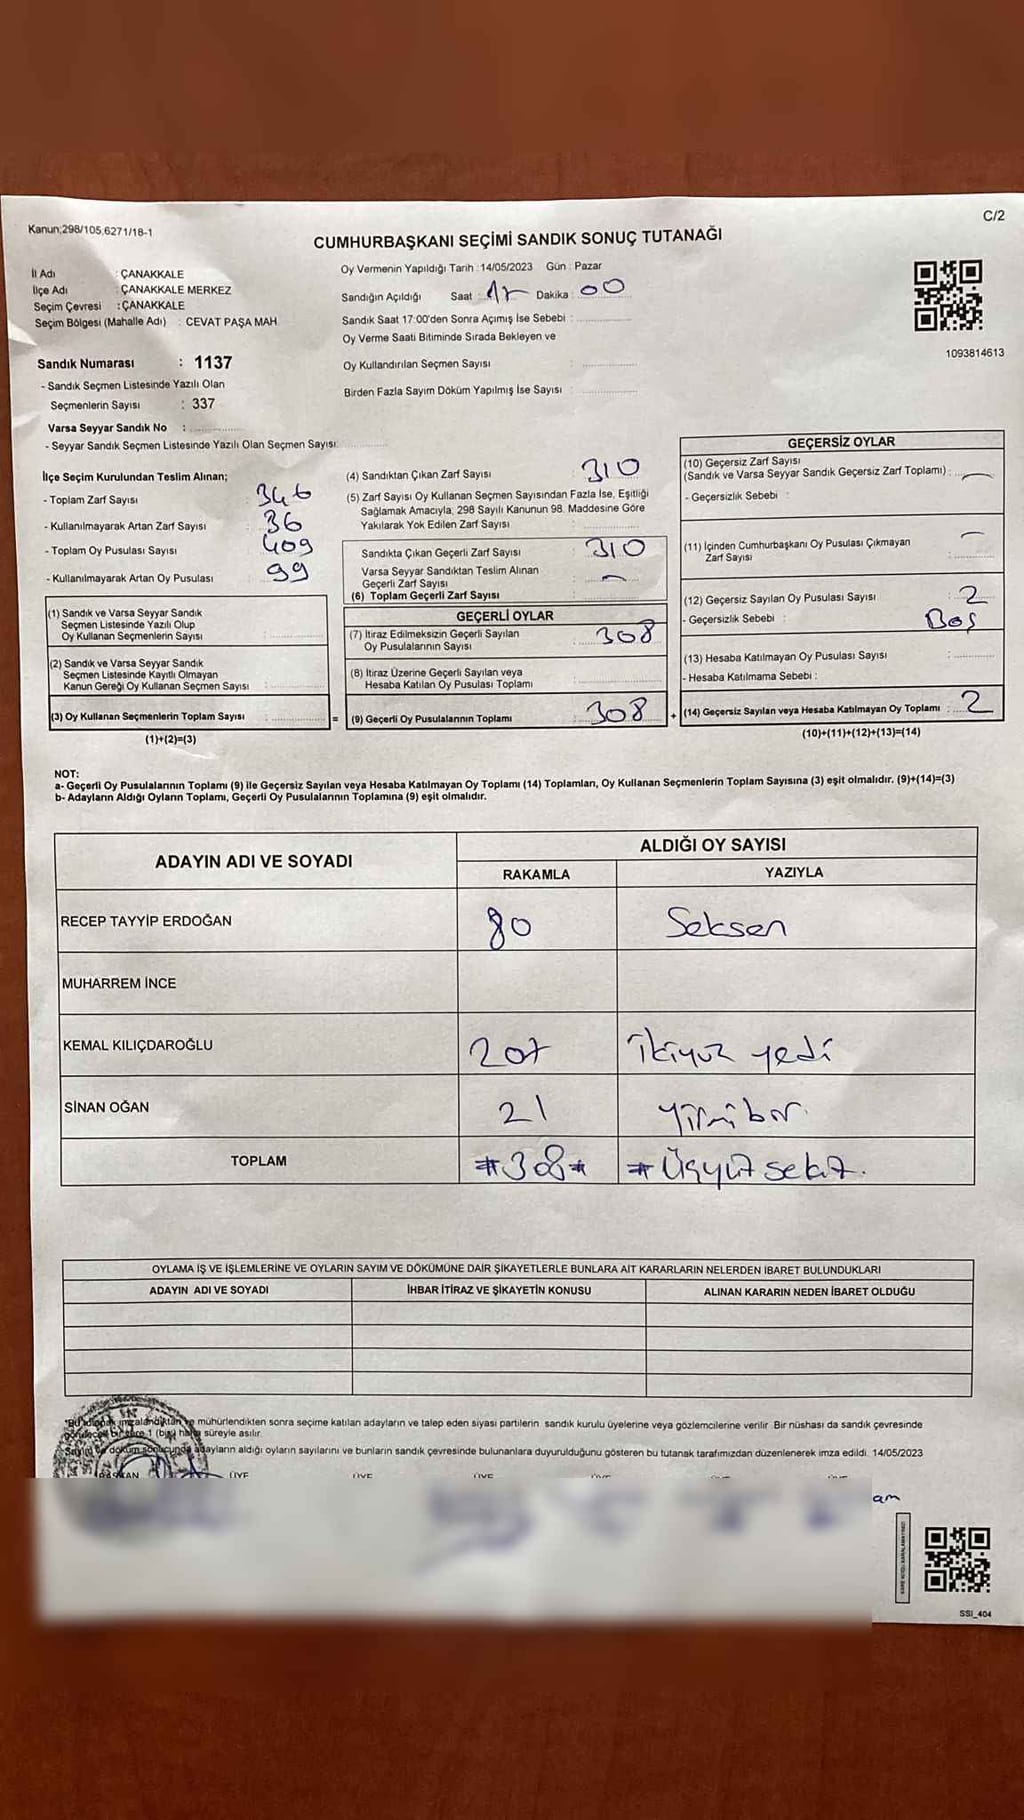 C/2
Kanun;298/105,6271/18-1
CUMHURBAŞKANI SEÇİMİ SANDIK SONUÇ TUTANAĞI
İl Adı : ÇANAKKALE
İlçe Adı : ÇANAKKALE MERKEZ
Seçim Çevresi : ÇANAKKALE
Seçim Bölgesi (Mahalle Adı) : CEVAT PAŞA MAH
Sandık Numarası : 1137
- Sandık Seçmen Listesinde Yazılı Olan
Seçmenlerin Sayısı : 337
Varsa Seyyar Sandık No :
- Seyyar Sandık Seçmen Listesinde Yazılı Olan Seçmen Sayısı:
Oy Vermenin Yapıldığı Tarih : 14/05/2023 Gün : Pazar
Sandığın Açıldığı Saat : 17 Dakika : 00
Sandık Saat 17:00'den Sonra Açımış İse Sebebi :
Oy Verme Saati Bitiminde Sırada Bekleyen ve
Oy Kullandırılan Seçmen Sayısı :
Birden Fazla Sayım Döküm Yapılmış İse Sayısı :
1093814613
İlçe Seçim Kurulundan Teslim Alınan;
- Toplam Zarf Sayısı : 346
- Kullanılmayarak Artan Zarf Sayısı : 36
- Toplam Oy Pusulası Sayısı : 409
- Kullanılmayarak Artan Oy Pusulası : 99
(1) Sandık ve Varsa Seyyar Sandık
Seçmen Listesinde Yazılı Olup
Oy Kullanan Seçmenlerin Sayısı :
(2) Sandık ve Varsa Seyyar Sandık
Seçmen Listesinde Kayıtlı Olmayan
Kanun Gereği Oy Kullanan Seçmen Sayısı :
(3) Oy Kullanan Seçmenlerin Toplam Sayısı :
(1)+(2)=(3)
=
(4) Sandıktan Çıkan Zarf Sayısı : 310
(5) Zarf Sayısı Oy Kullanan Seçmen Sayısından Fazla İse, Eşitliği
Sağlamak Amacıyla; 298 Sayılı Kanunun 98. Maddesine Göre
Yakılarak Yok Edilen Zarf Sayısı :
Sandıkta Çıkan Geçerli Zarf Sayısı : 310
Varsa Seyyar Sandıktan Teslim Alınan
Geçerli Zarf Sayısı : —
(6) Toplam Geçerli Zarf Sayısı :
GEÇERLİ OYLAR
(7) İtiraz Edilmeksizin Geçerli Sayılan
Oy Pusulalarının Sayısı : 308
(8) İtiraz Üzerine Geçerli Sayılan veya
Hesaba Katılan Oy Pusulası Toplamı :
(9) Geçerli Oy Pusulalarının Toplamı : 308
+
GEÇERSİZ OYLAR
(10) Geçersiz Zarf Sayısı
(Sandık ve Varsa Seyyar Sandık Geçersiz Zarf Toplamı) : —
- Geçersizlik Sebebi :
(11) İçinden Cumhurbaşkanı Oy Pusulası Çıkmayan
Zarf Sayısı : —
(12) Geçersiz Sayılan Oy Pusulası Sayısı : 2
- Geçersizlik Sebebi : Boş
(13) Hesaba Katılmayan Oy Pusulası Sayısı :
- Hesaba Katılmama Sebebi :
(14) Geçersiz Sayılan veya Hesaba Katılmayan Oy Toplamı : 2
(10)+(11)+(12)+(13)=(14)
NOT:
a- Geçerli Oy Pusulalarının Toplamı (9) ile Geçersiz Sayılan veya Hesaba Katılmayan Oy Toplamı (14) Toplamları, Oy Kullanan Seçmenlerin Toplam Sayısına (3) eşit olmalıdır. (9)+(14)=(3)
b- Adayların Aldığı Oyların Toplamı, Geçerli Oy Pusulalarının Toplamına (9) eşit olmalıdır.
ADAYIN ADI VE SOYADI ALDIĞI OY SAYISI
RAKAMLA YAZIYLA
RECEP TAYYİP ERDOĞAN 80 Seksen
MUHARREM İNCE
KEMAL KILIÇDAROĞLU 207 İkiyüz yedi
SİNAN OĞAN 21 yirmibir
TOPLAM #308# # Üçyüz sekiz.
OYLAMA İŞ VE İŞLEMLERİNE VE OYLARIN SAYIM VE DÖKÜMÜNE DAİR ŞİKAYETLERLE BUNLARA AİT KARARLARIN NELERDEN İBARET BULUNDUKLARI
ADAYIN ADI VE SOYADI İHBAR İTİRAZ VE ŞİKAYETİN KONUSU ALINAN KARARIN NEDEN İBARET OLDUĞU
imzalandıktan ve mühürlendikten sonra seçime katılan adayların ve talep eden siyasi partilerin sandık kurulu üyelerine veya gözlemcilerine verilir. Bir nüshası da sandık çevresinde
1 (bir) hafta süreyle asılır.
döküm sonucunda adayların aldığı oyların sayılarını ve bunların sandık çevresinde bulunanlara duyurulduğunu gösteren bu tutanak tarafımızdan düzenlenerek imza edildi. 14/05/2023
BAŞKAN ÜYE ÜYE ÜYE ÜYE ÜYE
am
SSI_404